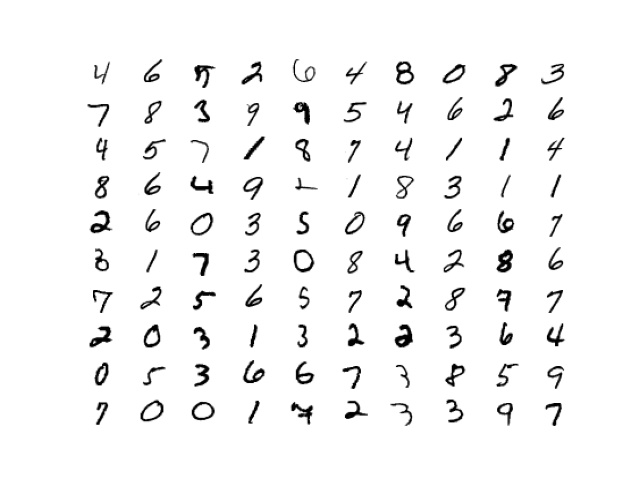 4 6 5 2 6 4 8 0 8 3
7 8 3 9 9 5 4 6 2 6
4 5 7 1 8 7 4 1 1 4
8 6 4 9 1 8 3 1 1
2 6 0 3 5 0 9 6 6 7
3 1 7 3 0 8 4 2 8 6
7 2 5 6 5 7 2 8 7 7
2 0 3 1 3 2 2 3 6 4
0 5 3 6 6 7 3 8 5 9
7 0 0 1 7 2 3 3 9 7